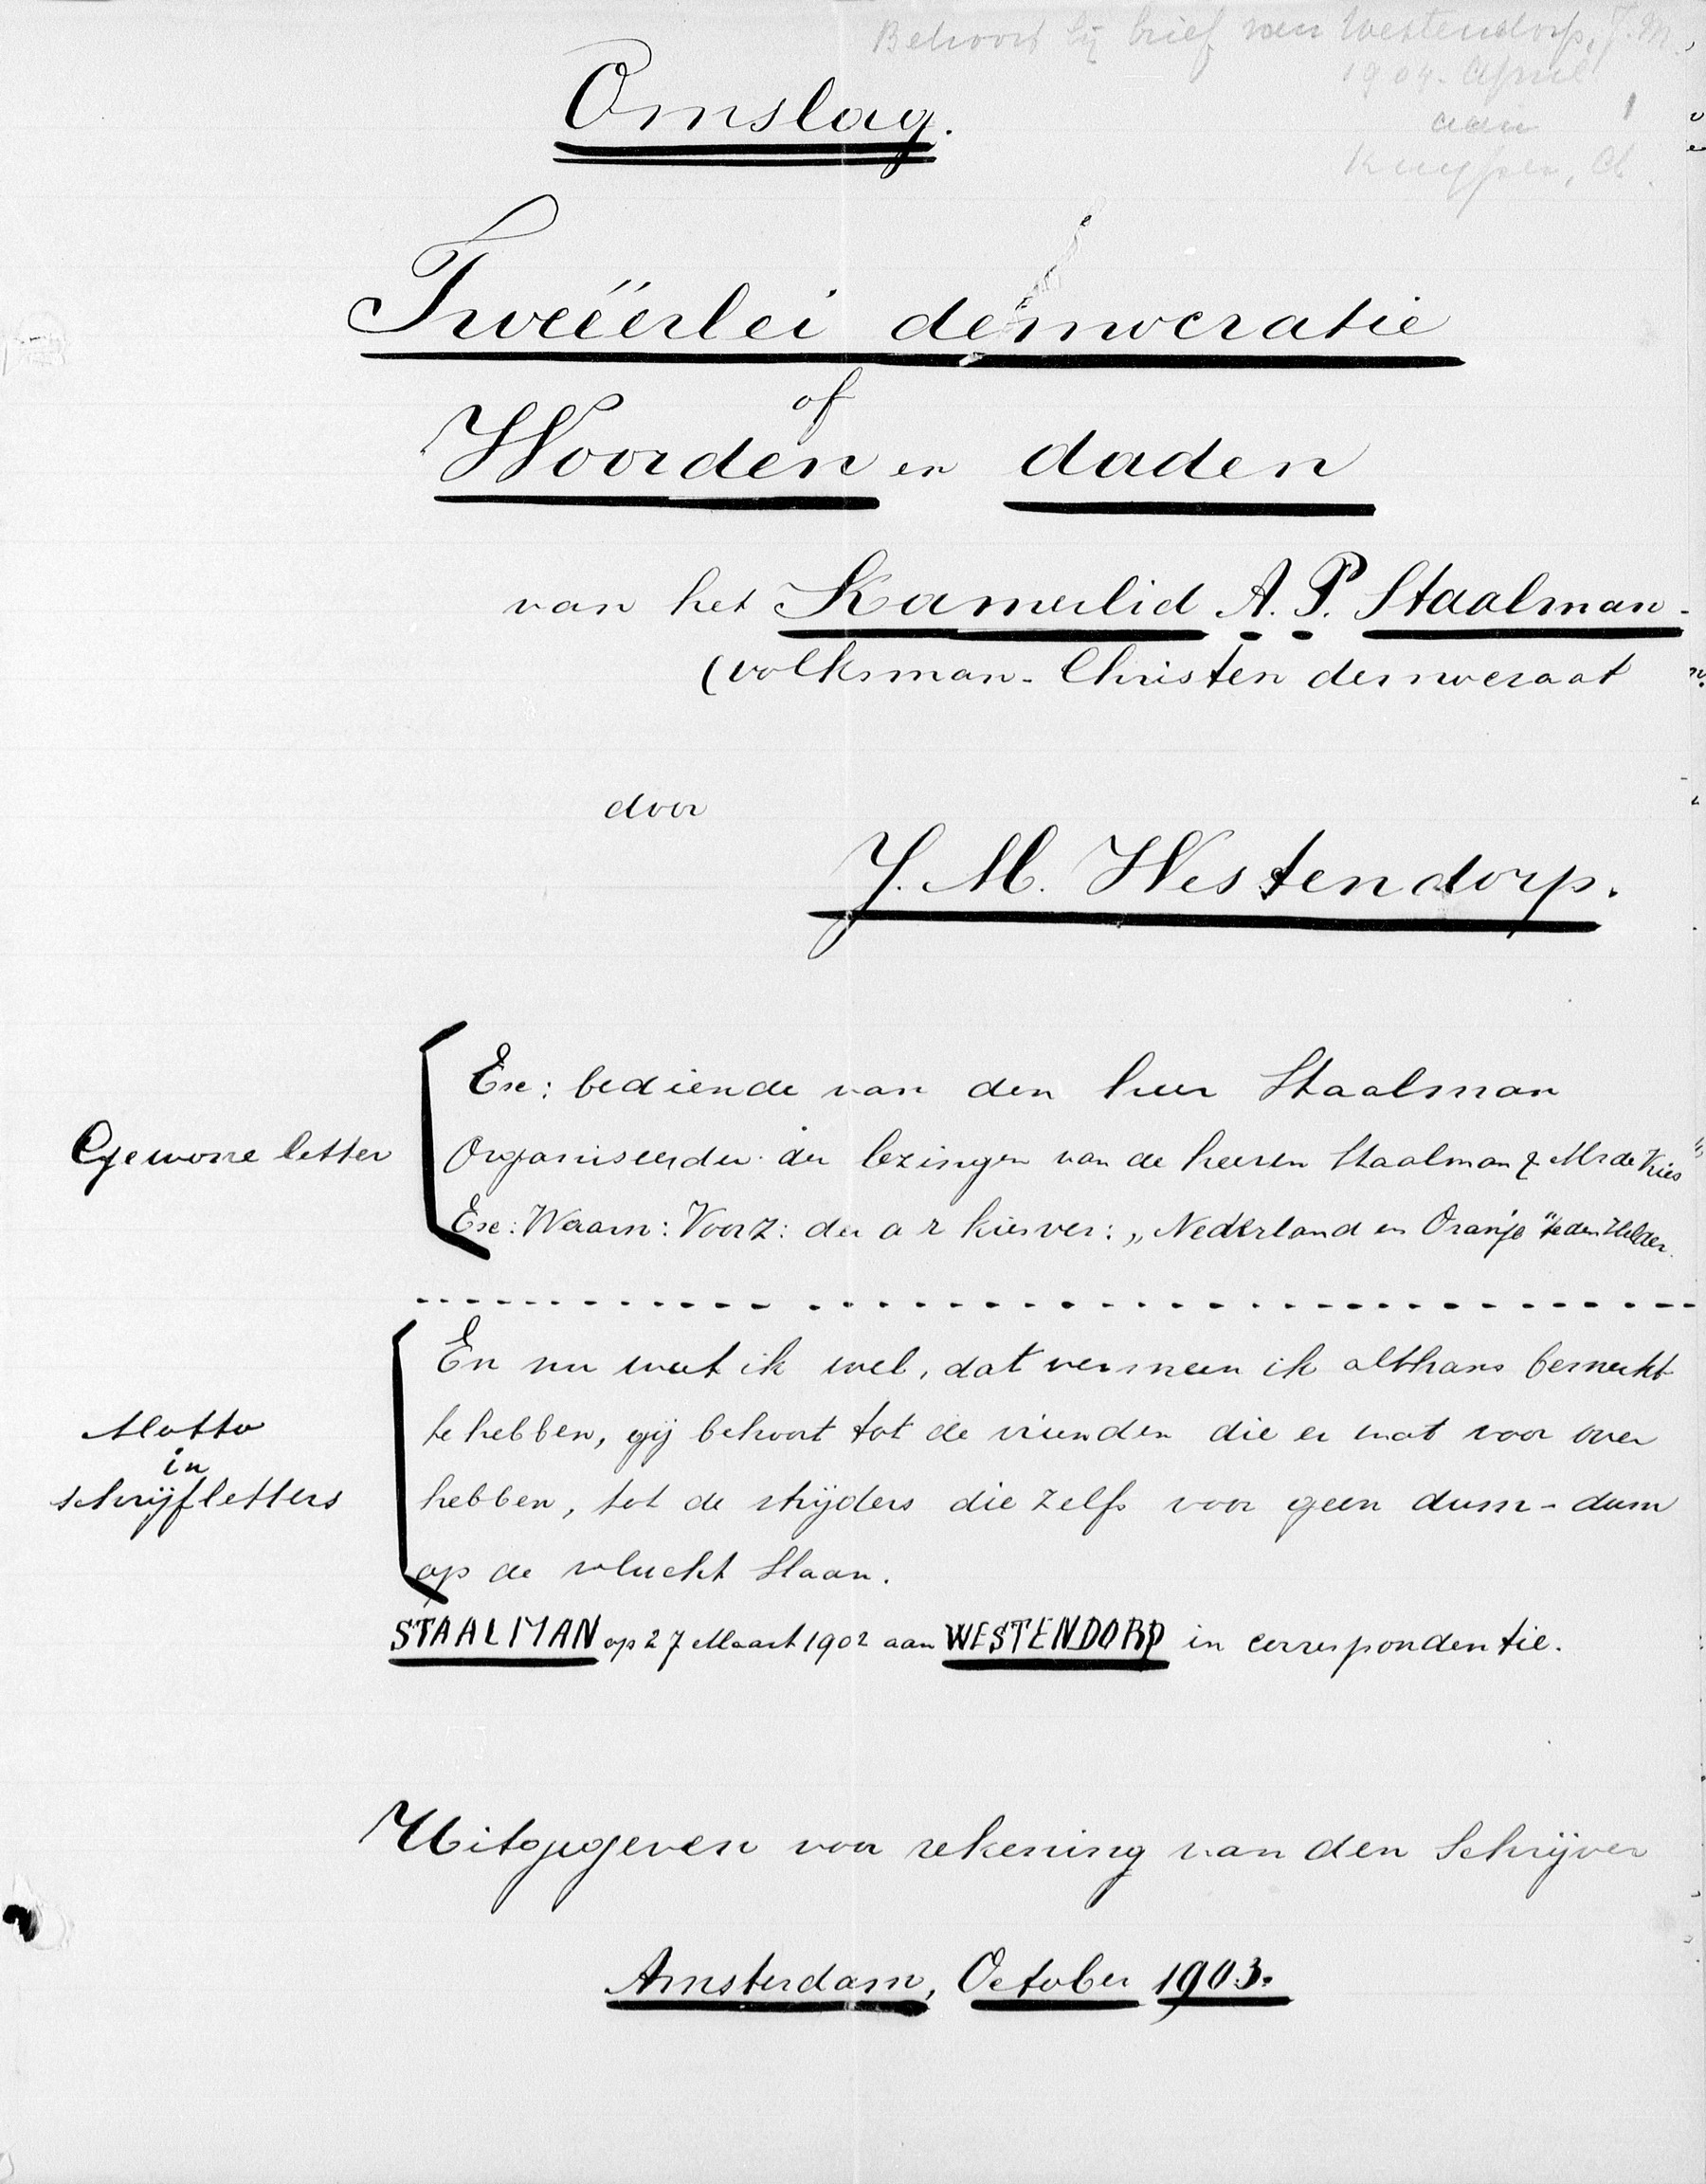 Behoort bij brief van Westendorp, J.M.,
1904. April
aan
Kuyper, A.
1
Omslag.
Tweeërlei democratie
of
Woorden en daden
van het Kamerlid A. P. Staalman.
(volksman. Christen democraat
door
J. M. Westendorp.
Gewone letter
Ex: bediende van den heer Staalman
Organiseerder der lezingen van de heeren Staalman & Mr de Vries"
Ex: Waarn: Voorz: der a r kiesver: „Nederland en Oranje" te den Helder.
Motto
in
schrijfletters
En nu weet ik wel, dat vermeen ik althans bemerkt
te hebben, gij behoort tot de vrienden die er wat voor over
hebben, tot de strijders die zelfs voor geen dum-dum
op de vlucht slaan.
STAALMAN op 27 Maart 1902 aan WESTENDORP in correspondentie.
Uitgegeven voor rekening van den Schrijver
Amsterdam, October 1903.